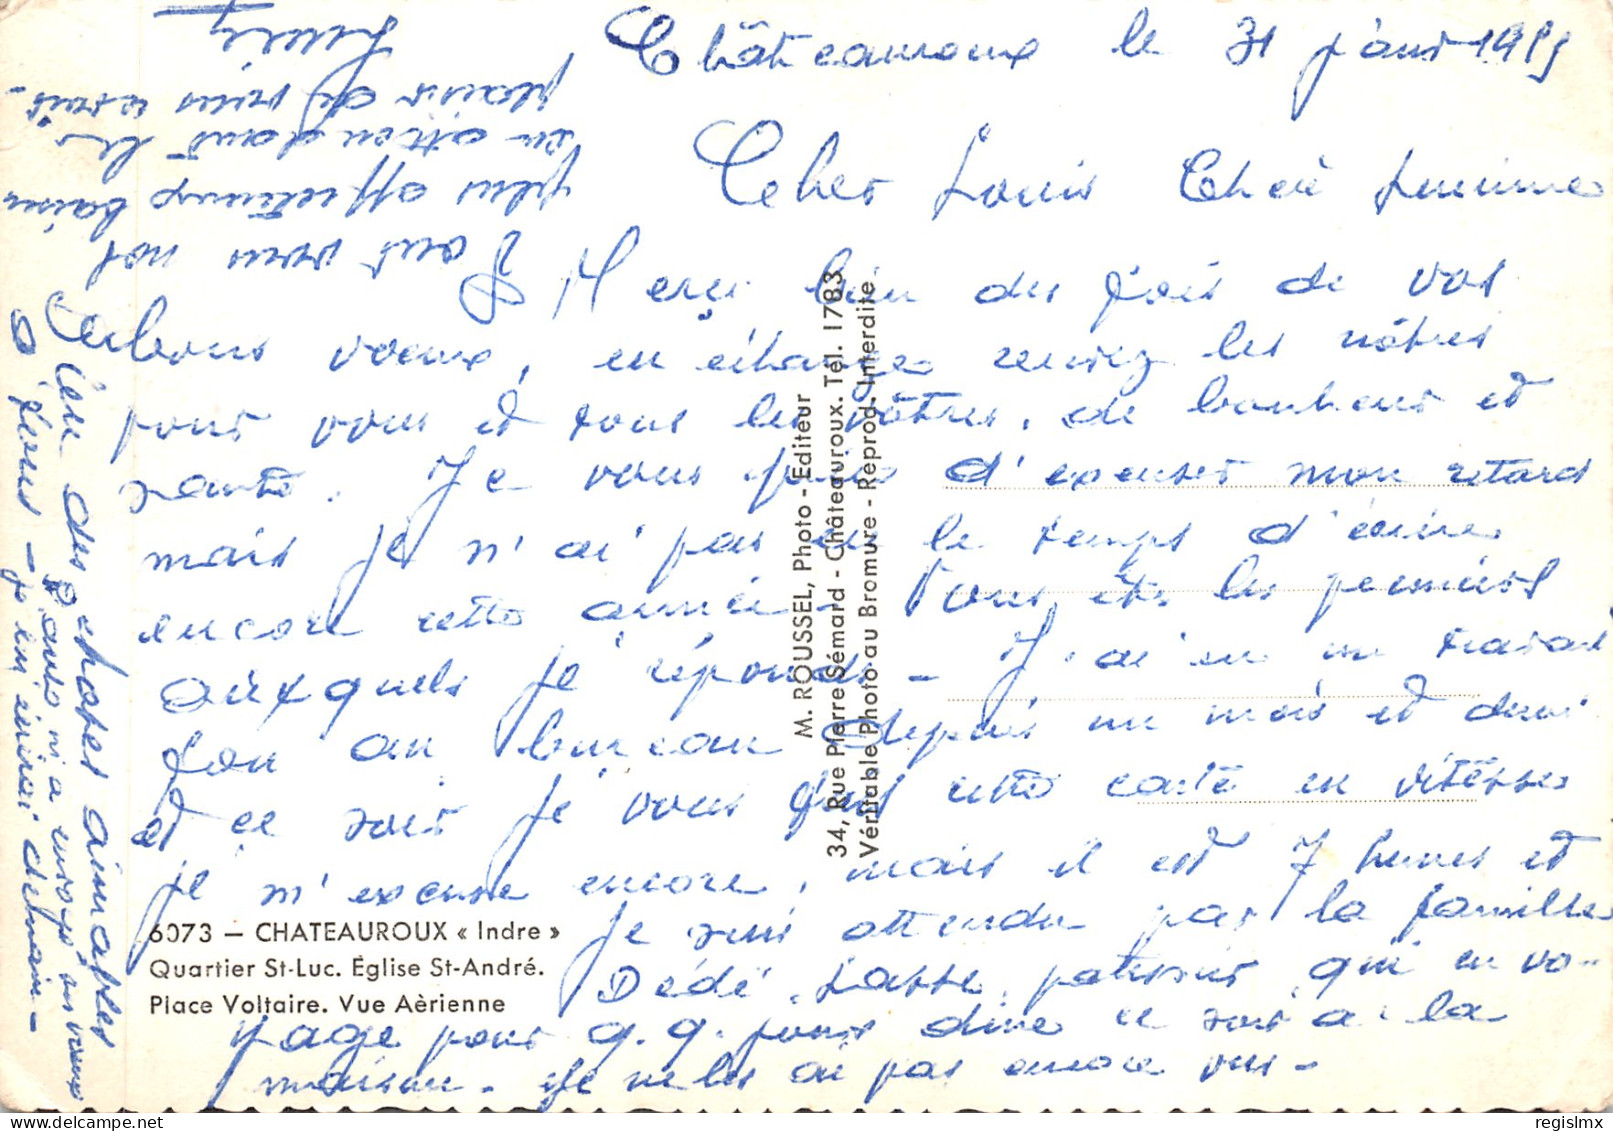 Châteauroux le 31 janv 19
Cher Louis Chère
Merci bien des fois de vos
bons voeux, en échange recevez les nôtres
pour vous et tous les vôtres, de bonheur et
santé. Je vous prie d'excuser mon retard
mais je n'ai pas eu le temps d'écrire
encore cette année - Vous êtes les premiers
auxquels je réponds - J'ai eu un travail
fou au bureau depuis un mois et demi
et ce soir je vous fais cette carte en vitesse
je m'excuse encore, mais il est 7 heures et
je suis attendu par la famille
Dédé pâtissier, qui en vo-
yage pour q.q. jours dîne ce soir à la
maison. Je ne les ai pas encore vus -
Bien des choses aimables
à tous - je lui écrirai demain -
m'a envoyé ses voeux
vous
plus affectueux baisers
en attendant le
plaisir de vous voir.
M. ROUSSEL, Photo - Editeur
34, Rue Pierre Sémard - Châteauroux. Tél. 1783
Véritable Photo au Bromure - Reprod. Interdite
6073 — CHATEAUROUX « Indre »
Quartier St-Luc. Église St-André.
Place Voltaire. Vue Aèrienne
regislmx
delcampe.net